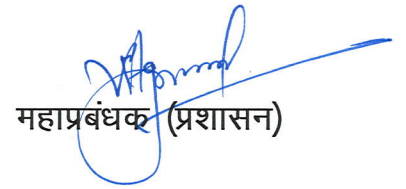 महाप्रबंधक (प्रशासन)